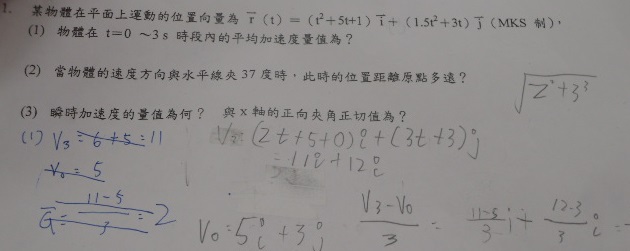 1. 某物體在平面上運動的位置向量為 r̄ (t) = (t²+5t+1) i̅ + (1.5t²+3t) j̅ (MKS 制),
(1) 物體在 t=0 ~3 s 時段內的平均加速度量值為?
(2) 當物體的速度方向與水平線夾 37 度時,此時的位置距離原點多遠?
√2²+3²
(3) 瞬時加速度的量值為何? 與 x 軸的正向夾角正切值為?
(1) V₃ = 6+5 = 11
V₃ = (2t+5+0)i + (3t+3)j
= 11i + 12i
V₀ = 5
G = 11-5 / 3 = 2
V₀ = 5i + 3j
V₃-V₀ / 3 = 11-5 / 3 i + 12-3 / 3 i =